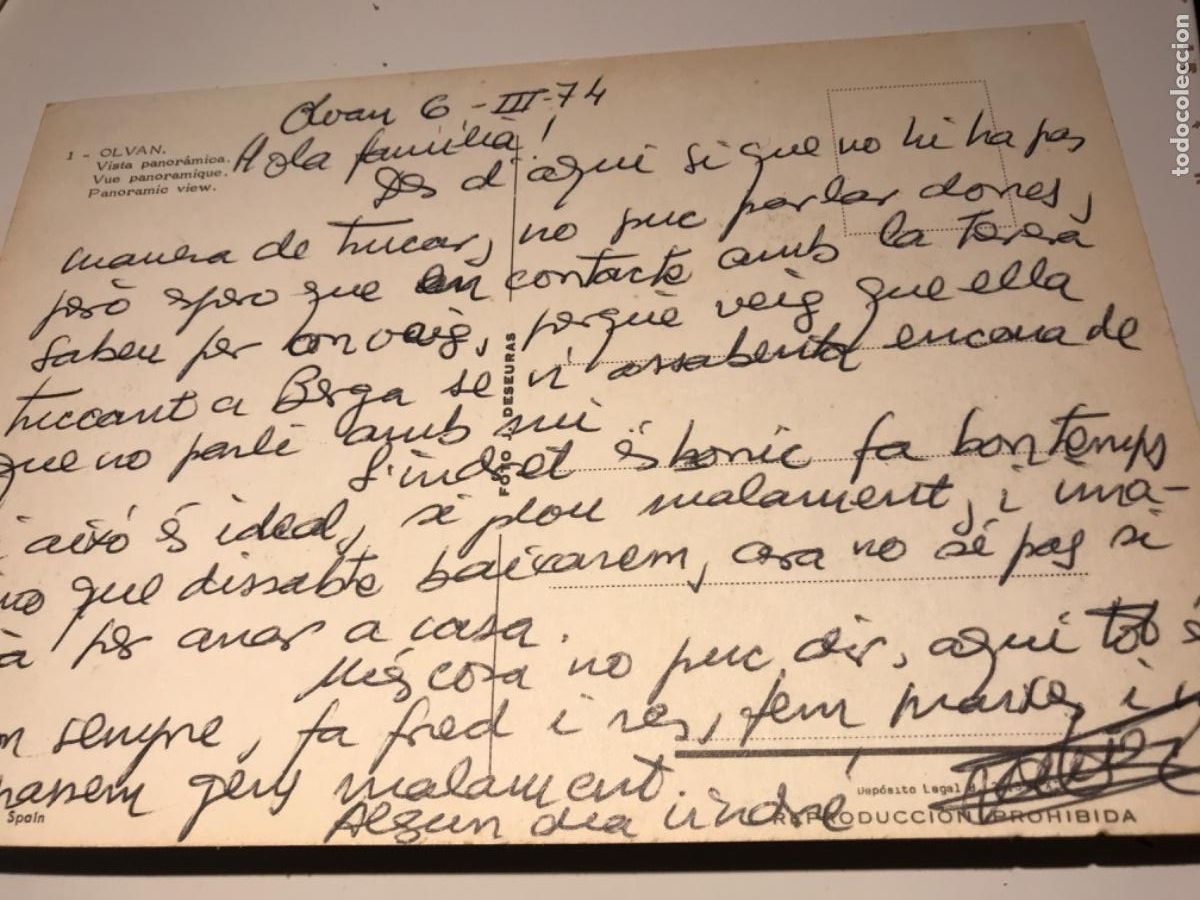 todocoleccion
Olvan 6-III-74
1 - OLVAN.
Vista panorámica.
Vue panoramique.
Panoramic view.
Hola família!
Des d'aquí si que no hi ha pas
manera de trucar, no puc parlar dones,
però espero que en contacte amb la Teresa
sabeu per on vaig, perquè veig que ella
truccant a Berga se n'assabenta encara de
que no parli amb mi.
L'indret és bonic fa bon temps
i això és ideal, si plou malament, i ima-
no que dissabte baixarem, ara no sé pas si
à per anar a casa.
Més cosa no puc dir, aquí tot
sempre, fa fred i res, fem marxes i
passem gens malament.
Algun dia vindré
FOTO DESEURAS
Depósito Legal
Spain
REPRODUCCION PROHIBIDA